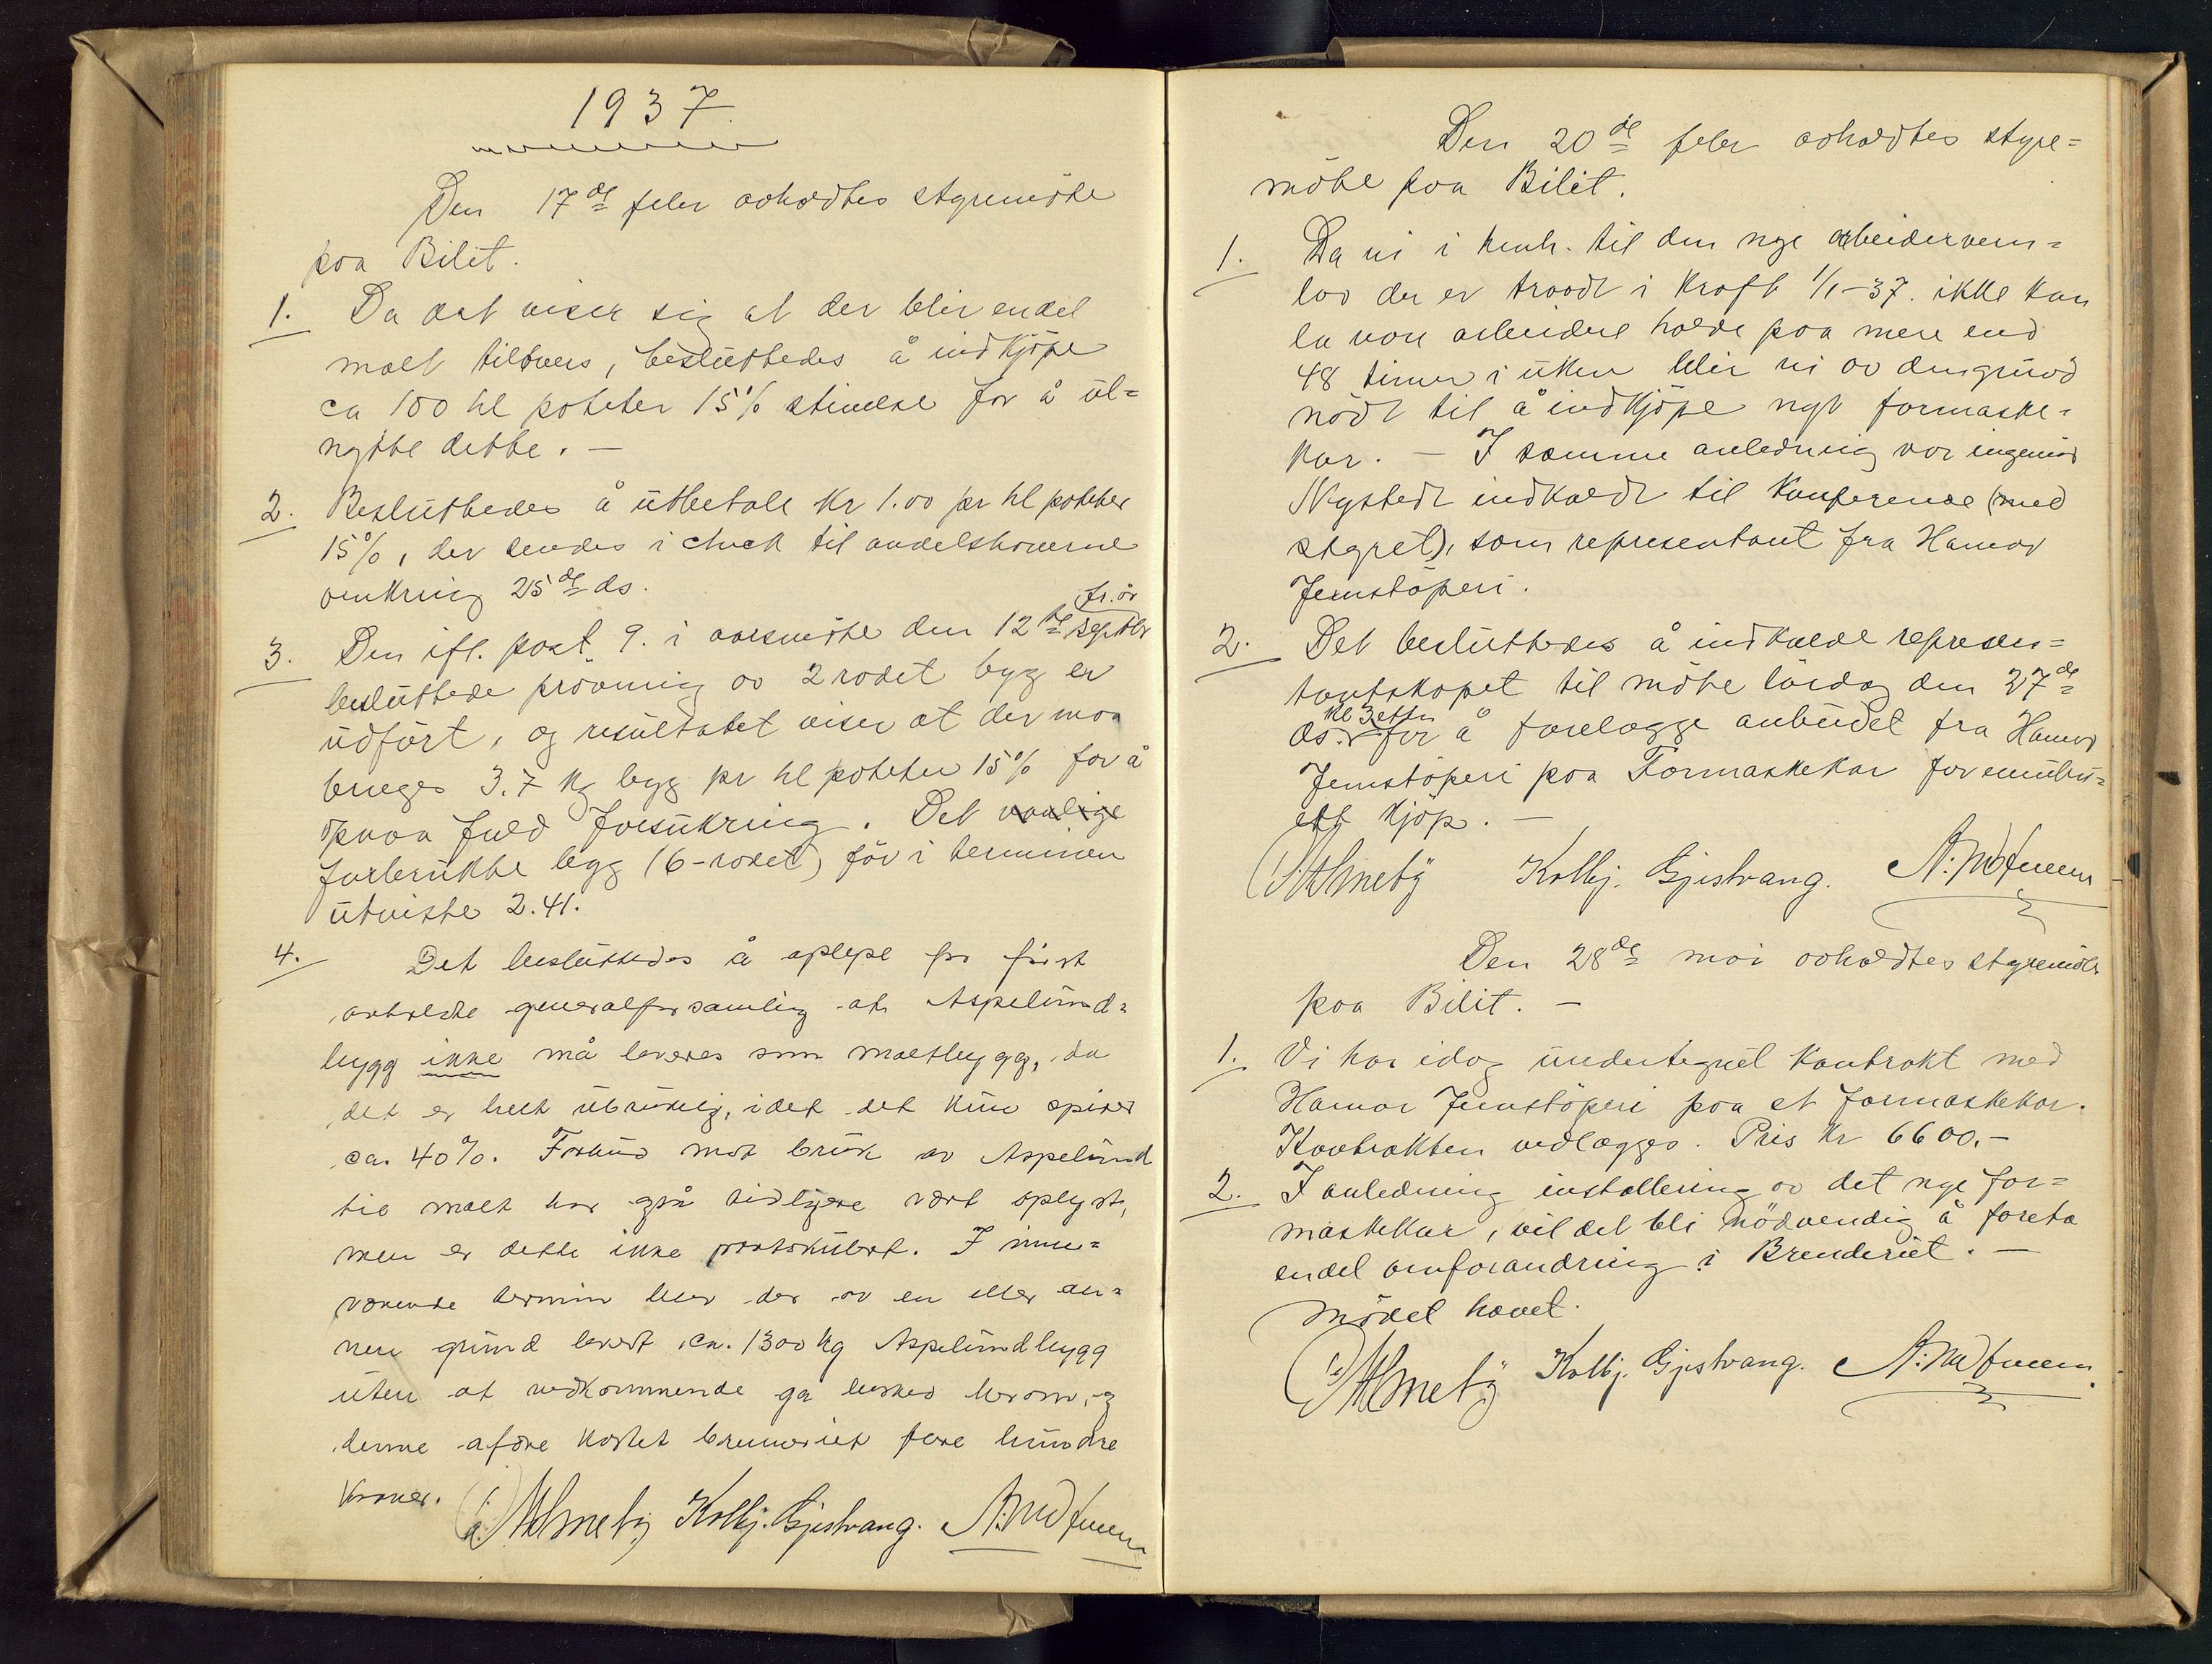 1937.
Den 17de febr avholdtes styremöte
paa Bilit.
1. Da det viser sig at der blir endel
malt tilovers, besluttedes å indkjöpe
ca 100 hl poteter 15% stivelse for å ut=
nytte dette. —
2. Besluttedes å utbetale Kr 1.00 pr hl poteter
15%, der sendes i check til andelshaverne
omkring 25de ds.
fr. år
3. Den ifl. post 9. i aarsmöte den 12te septbr
besluttede prövning av 2 radet byg er
udfört, og resultatet viser at der maa
bruges 3.7 kg bygg pr hl poteter 15% for å
opnaa fuld forsukring. Det vanlige
forbrukte bygg (6-radet) för i terminen
utviste 2.41.
4. Det besluttedes å opta på först
avholdte generalforsamling at Aspelund=
bygg ikke må leveres som maltbygg, da
det er helt ubrukelig, idet det kun spirer
ca. 40%. Forbud mot bruk av Aspelund
til malt har også tidligere vært oplyst,
men er dette ikke protokulert. I inne=
værende termin blev der av en eller an=
nen grund levert ca. 1300 kg Aspelundbygg
uten at vedkommende ga beskjed herom, og
denne affære kostet brenneriet flere hundre
kroner.
Kolbj. Gjestvang.
Den 20de febr avholdtes styre=
möte paa Bilit.
1. Da vi i henh. til den nye arbeidervern=
lov der er traadt i kraft 1/1-37. ikke kan
la vore arbeidere holde paa mere end
48 timer i uken blir vi av den grund
nödt til å indkjöpe nyt formaske=
kar. — I samme anledning var ingeniör
Nystedt indkaldt til Konferense (med
styret), som representant fra Hamar
Jernstöperi.
2. Det besluttedes å indkalde represen=
tantskapet til möte lördag den 27de
kl 3 eftm
ds. for å forelægge anbudet fra Hamar
Jernstöperi paa Formaskekar for eventu=
elt kjöp. —
Kolbj. Gjestvang.
Den 28de mai avholdtes styremöte
paa Bilit. —
1. Vi har idag undertegnet kontrakt med
Hamar Jernstöperi paa et formaskekar.
Kontrakten vedlægges. Pris kr 6600.—
2. I anledning installering av det nye for=
maskekar, vil det bli nödvendig å foreta
endel omforandring i Brenderiet. —
Mödet hævet.
Kolbj. Gjestvang.